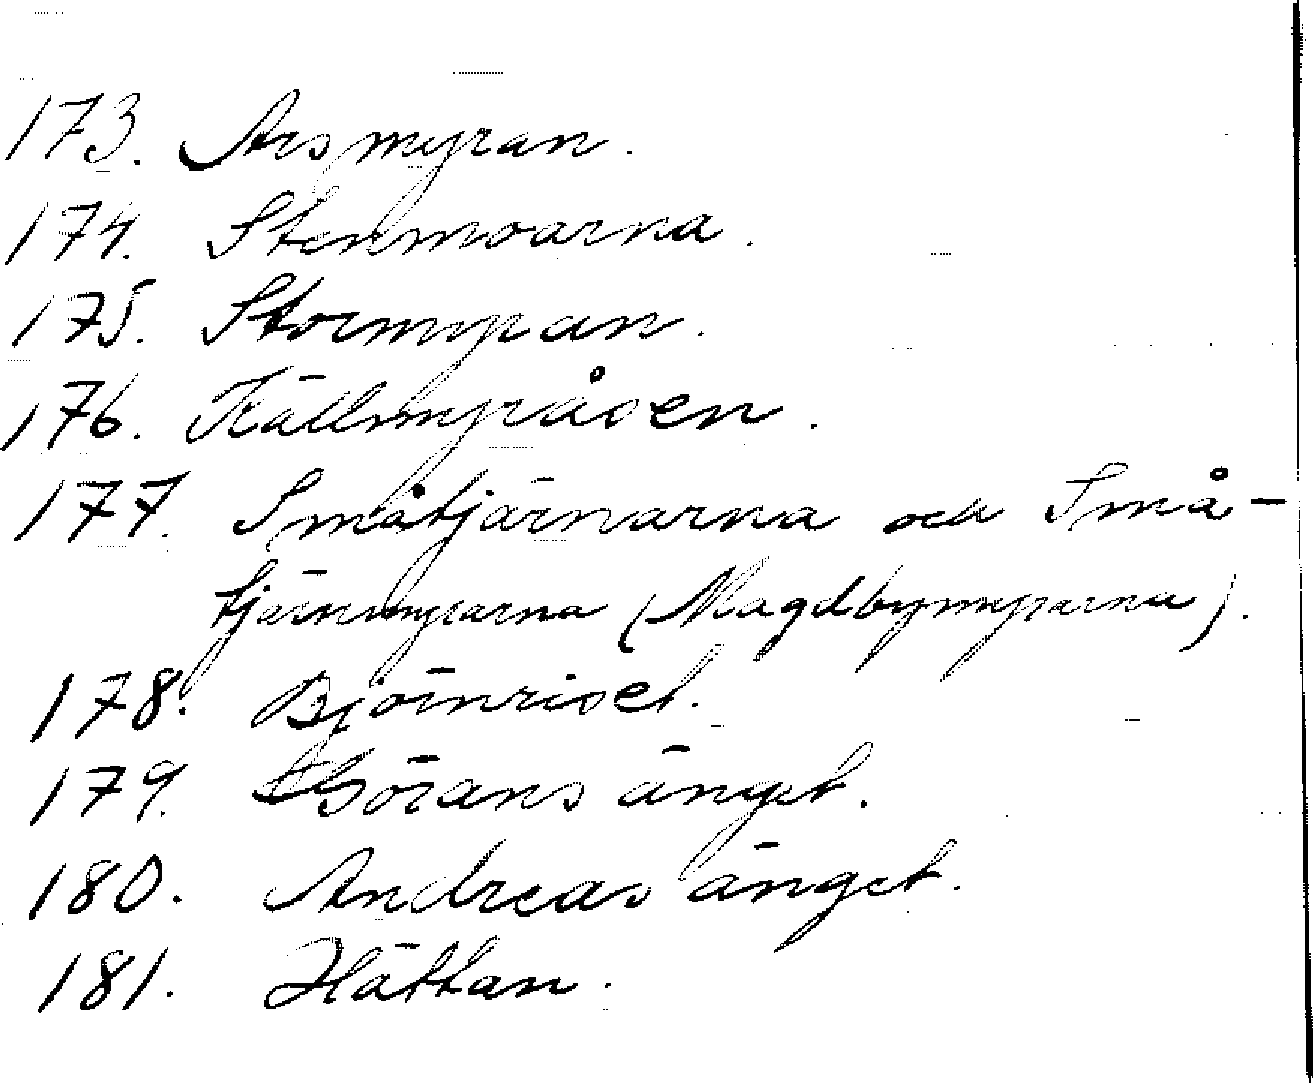 173. Arsmyran.
174. Stenmoarna.
175. Stormyran.
176. Källmyråsen.
177. Småtjärnarna och Små-
tjärnmyrarna (Magdbymyrarna).
178. Björnriset.
179. Görans änget.
180. Andreas änget.
181. Hättan.